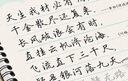 天生我材必有用
千金散尽还复来
长风破浪会有时
直挂云帆济沧海
飞流直下三千尺
疑是银河落九天